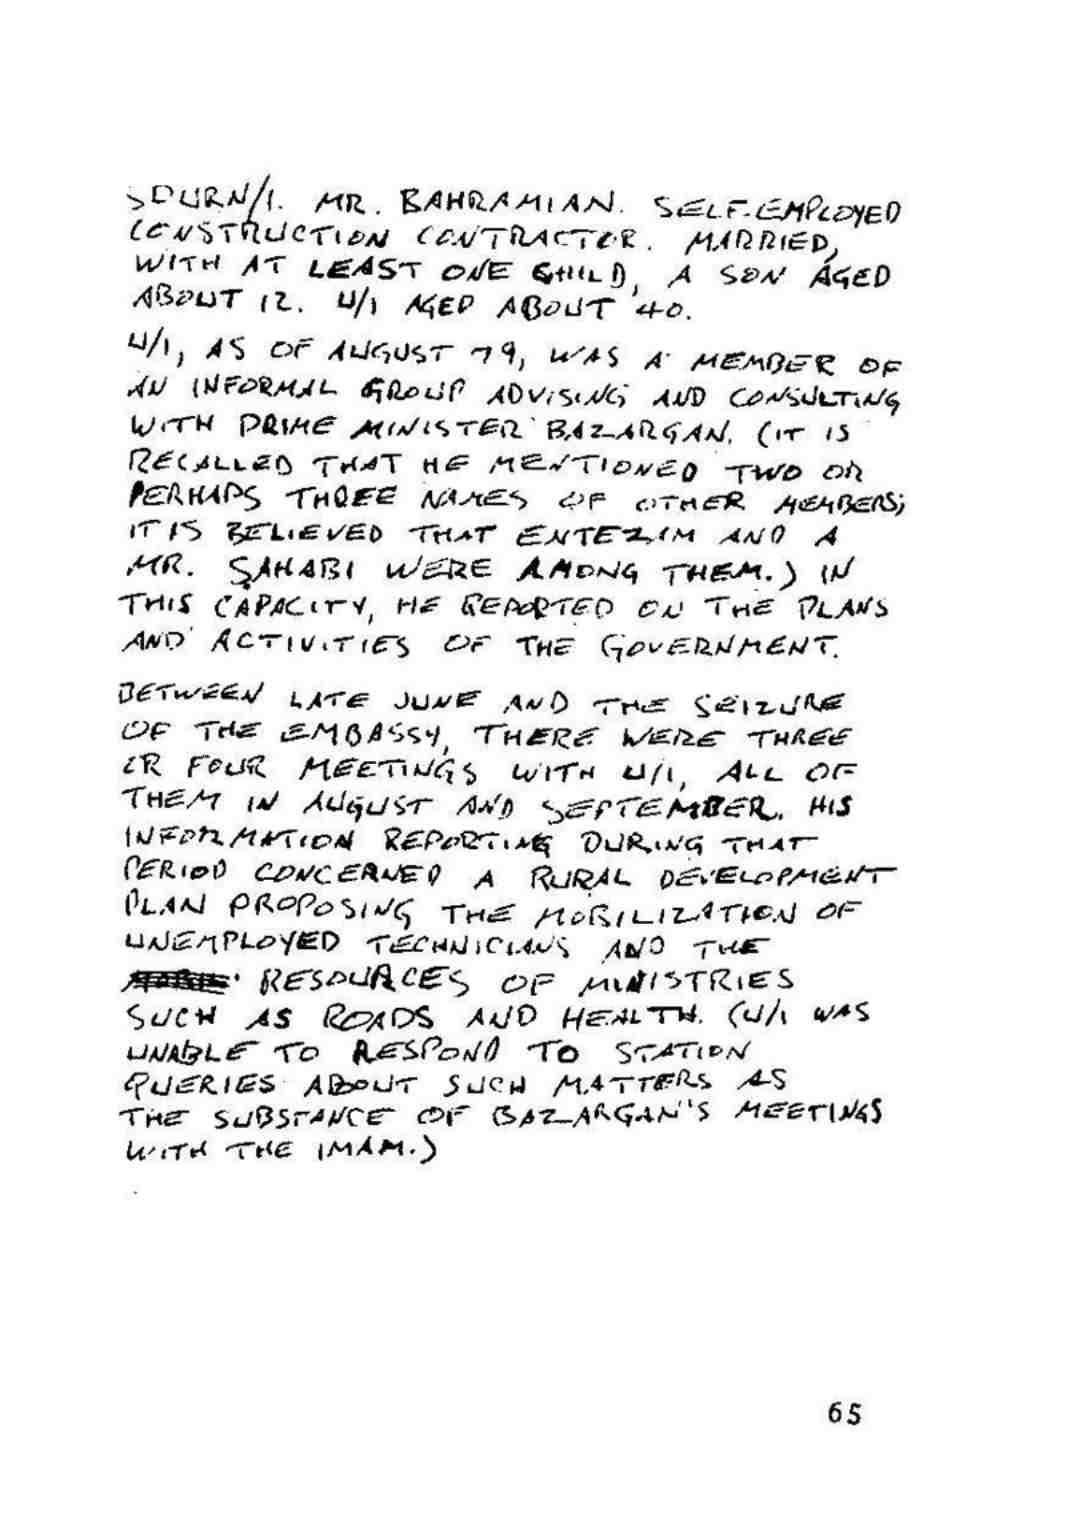 SDURN/1. MR. BAHRAMIAN. SELF-EMPLOYED
CONSTRUCTION CONTRACTOR. MARRIED,
WITH AT LEAST ONE CHILD, A SON AGED
ABOUT 12. U/1 AGED ABOUT 40.
U/1, AS OF AUGUST 79, WAS A MEMBER OF
AN INFORMAL GROUP ADVISING AND CONSULTING
WITH PRIME MINISTER BAZARGAN. (IT IS
RECALLED THAT HE MENTIONED TWO OR
PERHAPS THREE NAMES OF OTHER MEMBERS;
IT IS BELIEVED THAT ENTEZIM AND A
MR. SAHABI WERE AMONG THEM.) IN
THIS CAPACITY, HE REPORTED ON THE PLANS
AND ACTIVITIES OF THE GOVERNMENT.
BETWEEN LATE JUNE AND THE SEIZURE
OF THE EMBASSY, THERE WERE THREE
OR FOUR MEETINGS WITH U/1, ALL OF
THEM IN AUGUST AND SEPTEMBER. HIS
INFORMATION REPORTING DURING THAT
PERIOD CONCERNED A RURAL DEVELOPMENT
PLAN PROPOSING THE MOBILIZATION OF
UNEMPLOYED TECHNICIANS AND THE
RESOURCES OF MINISTRIES
SUCH AS ROADS AND HEALTH. (U/1 WAS
UNABLE TO RESPOND TO STATION
QUERIES ABOUT SUCH MATTERS AS
THE SUBSTANCE OF BAZARGAN'S MEETINGS
WITH THE IMAM.)
65